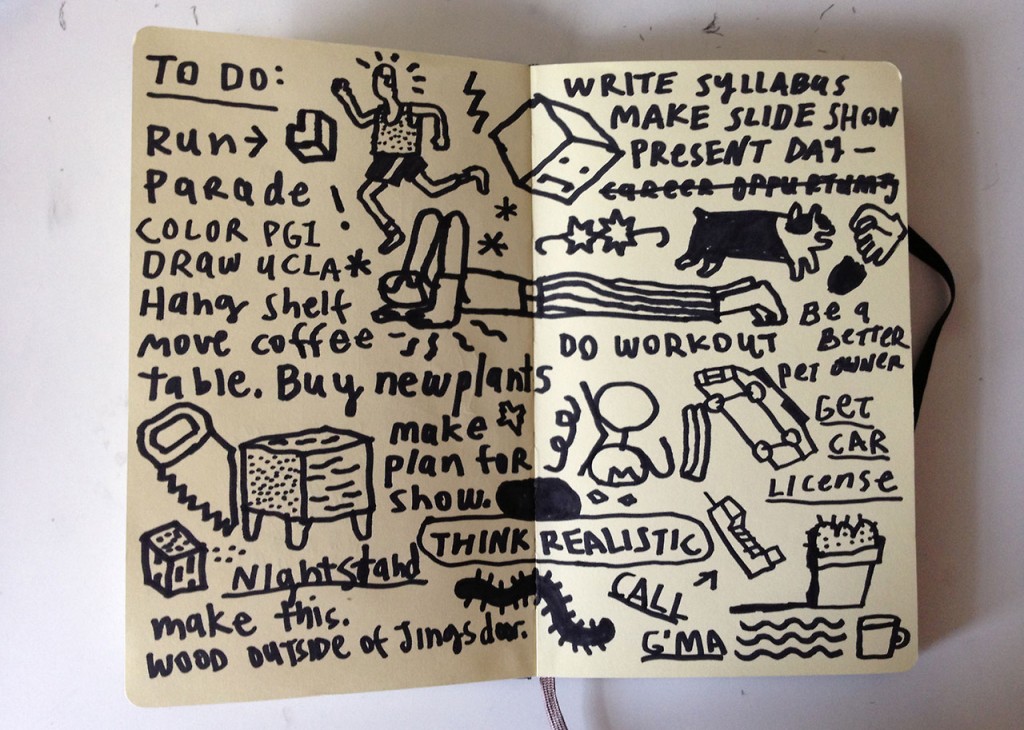 TO DO:
Run →
Parade!
COLOR PG1
DRAW UCLA *
Hang shelf
move coffee
table. Buy new plants
make
plan for
show.
THINK REALISTIC
Nightstand
make this.
WOOD OUTSIDE of Jings door.
WRITE SYLLABUS
MAKE SLIDE SHOW
PRESENT DAY —
CAREER OPPURTUNITY
DO WORKOUT
Be a
BETTER
PET OWNER
GET
CAR
LICENSE
CALL
G'MA